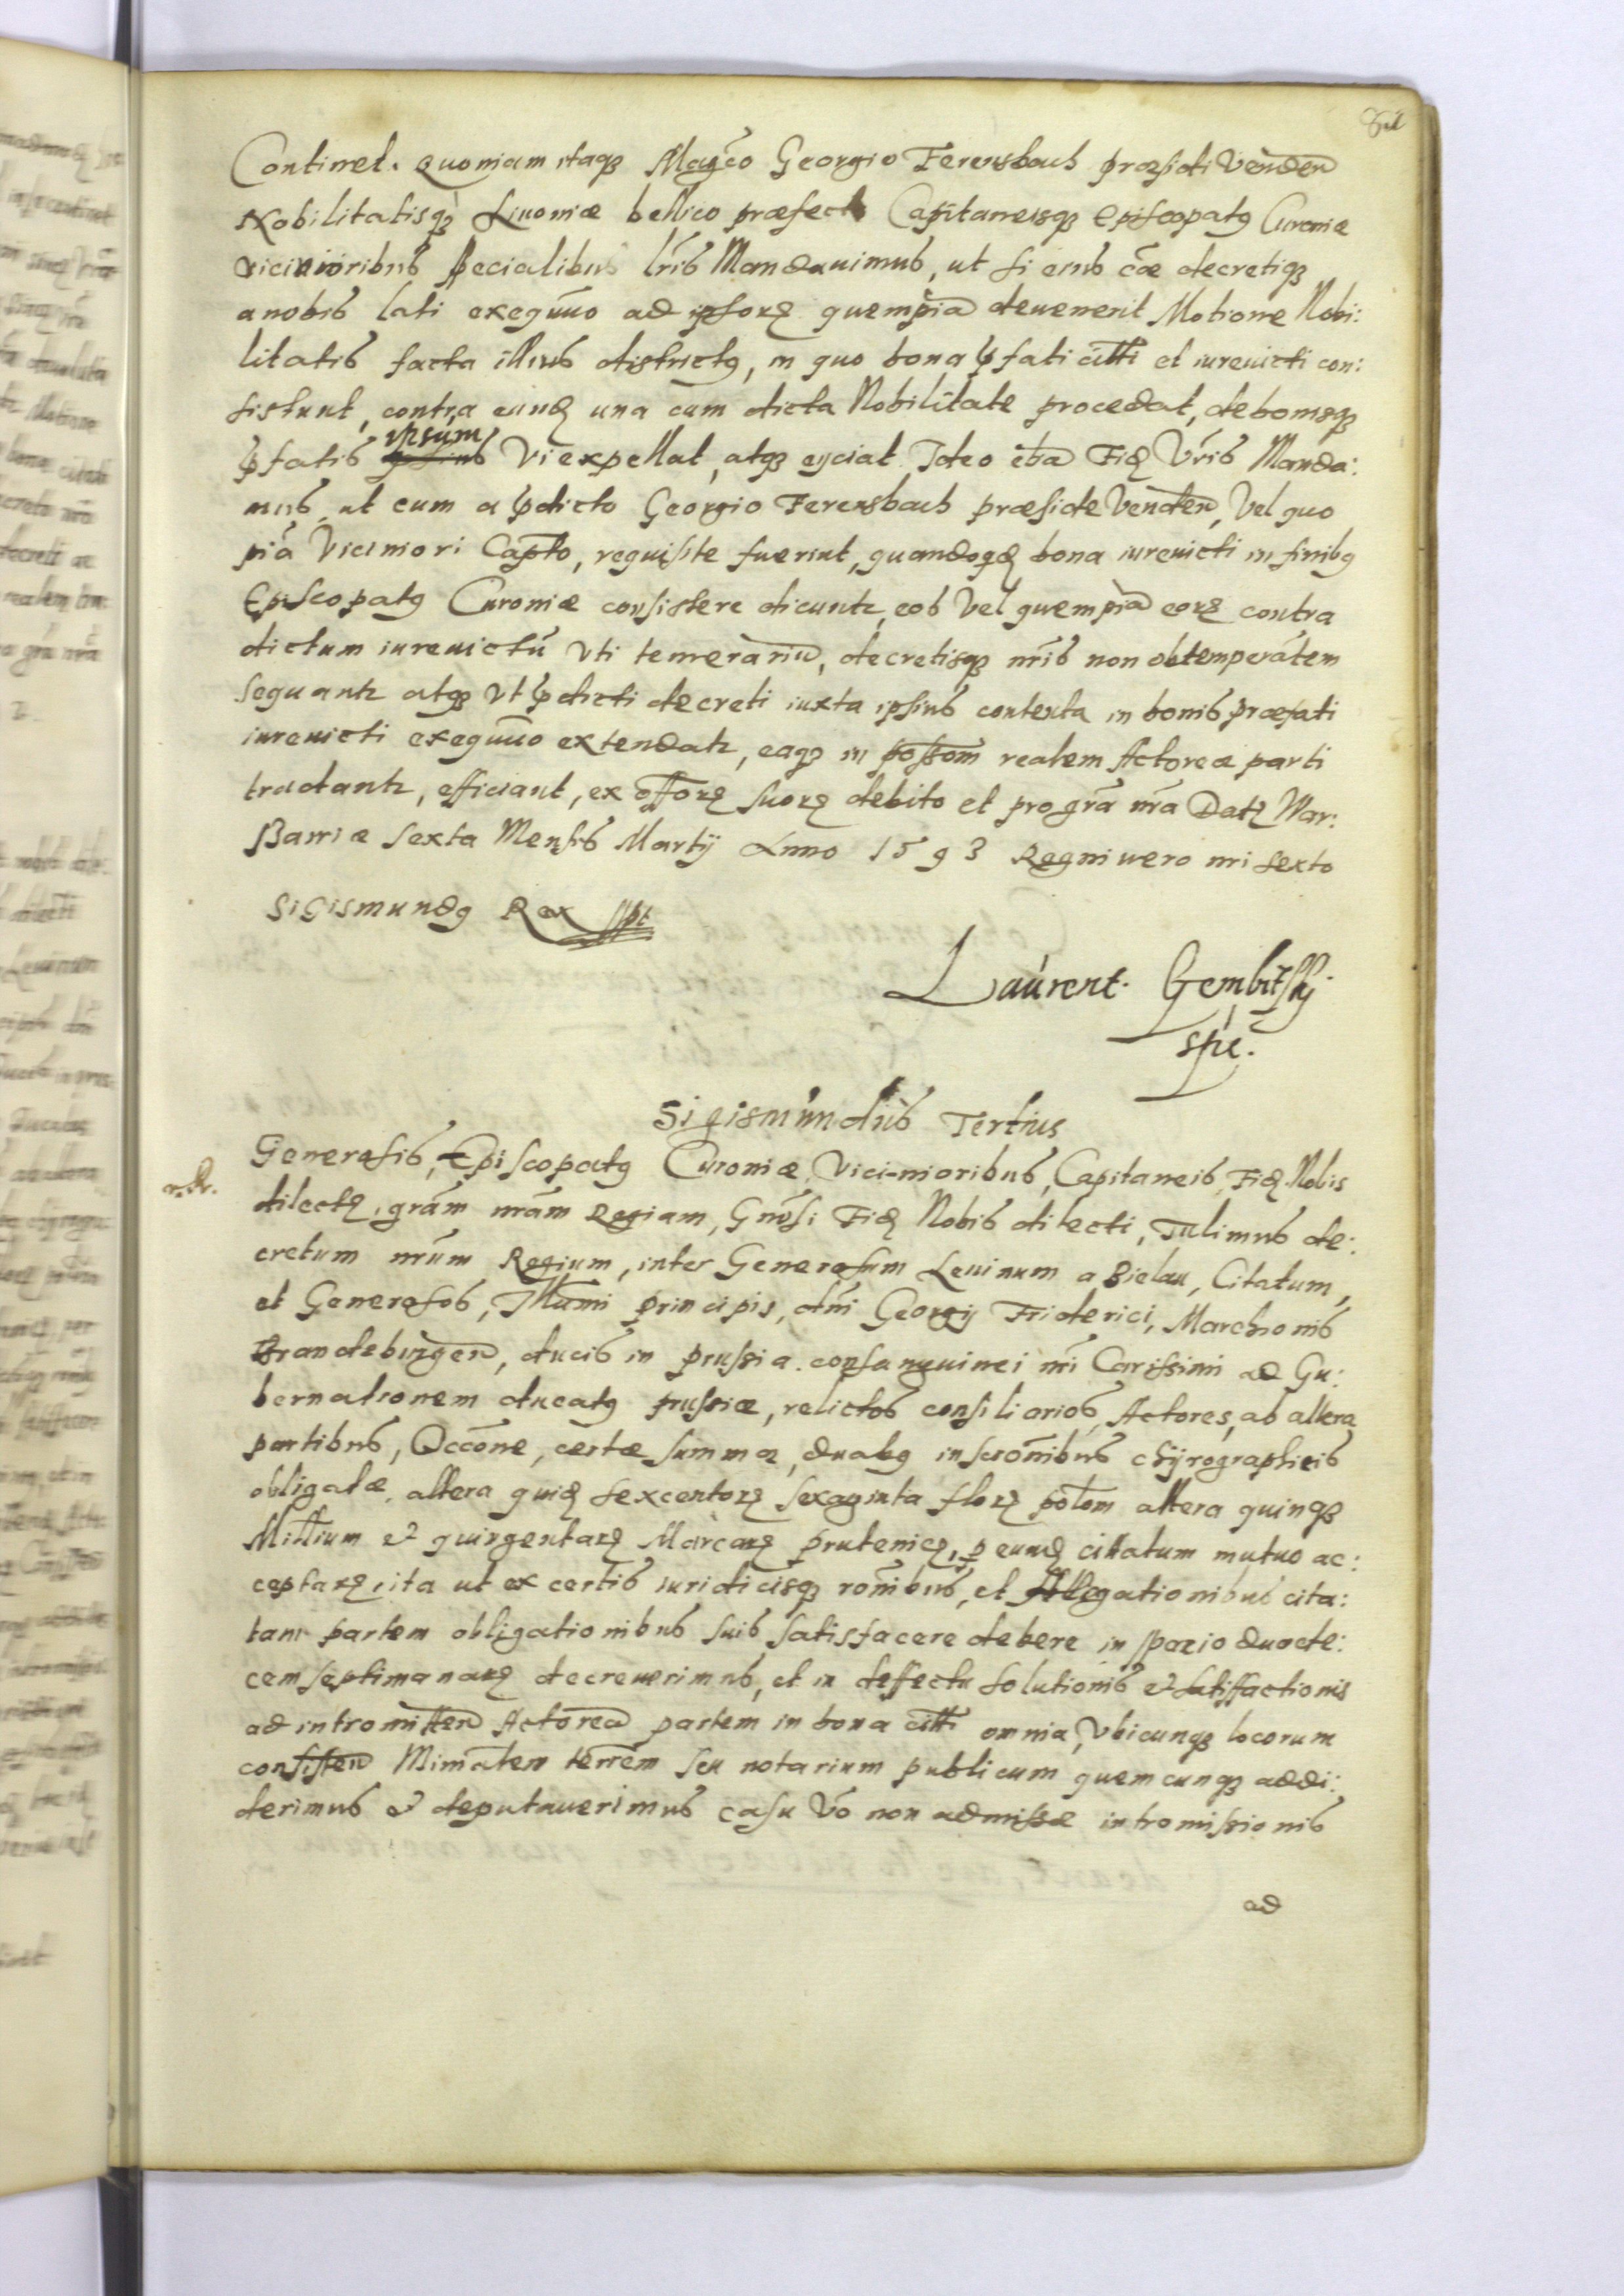 Continet. Quoniam itaqꝫ Magco Georgio Ferensbach præsidi Venden
Nobilitatisqꝫ Liuoniæ bellico præfecto Capitaneisqꝫ Episcopatꝰ Curoniæ
vicinioribus specialibus lris Mandauimus, ut si eius cae decretiqꝫ
a nobis lati exeqūuo ad ipsorꝝ quempia deuenerit Motione Nobi:
litatis facta illius districtꝰ, in quo bona pfati citti et iureuicti con:
sistunt, contra eundꝫ una cum dicta Nobilitate procedat, de bonisqꝫ
pfatis ipsum Vi expellat, atqꝫ eyciat Ideo etia Fidꝫ Vris Manda:
mus, ut cum a pdicto Georgio Ferensbach præside Venden, Vel quo
pia Viciniori Capto, requisite fuerint, quandoqdꝫ bona iureuicti in finibꝰ
Episcopatꝰ Curoniæ consistere dicuntr, eos Vel quempia eorꝝ contra
dictum iureuictu Vti temerariu, decretisqꝫ nris non obtemperatem
sequantr atqꝫ Vt pdicti decreti iuxta ipsius contenta in bonis præfati
iureuicti exeqūuo extendatr, eaqꝫ in possom realem Actoreæ parti
tradantr, efficiant, ex offorꝝ suorꝝ debito et pro gra nra Datꝫ War:
ßauiæ sexta Mensis Martij Anno 1593 Regni uero nri sexto
Sigismundꝰ Rex sspt
Laurent. Gembitsky
spc.
Sigismundus Tertius
Generosis, Episcopatꝰ Curoniæ, Vicinioribus, Capitaneis, Fidꝫ Nobis
dilectꝫ, gram nram Regiam, Gnosi Fidꝫ Nobis dilecti, Tulimus de:
cretum nrum Regium, inter Generosum Leuinum a Bielau, Citatum,
et Generosos, Illumi principis, dni Georgij Friderici, Marchionis
Brandeburgen, ducis in prussia consanguinei nri Carissimi ad Gu:
bernationem ducatꝰ prussiæ, relictos consiliarios, Actores, ab altera
partibus, Occone, certæ summæ, duabꝰ inscronibus chijrographicis
obligatæ, altera quidꝫ sexcentorꝝ sexaginta florꝝ polom altera quinqꝫ
Millium et quingentarꝝ Marcarꝝ prutenicꝝ, p eundꝫ citatum mutuo ac:
ceptarꝝ, ita ut ex certis iuridicisqꝫ ronibus, et Allegationibus cita:
tam partem obligationibus suis, satisfacere debere in spacio duode:
cem septimanarꝝ decreuerimus, et in deffectu solutionis et satisfactionis
ad intromitten Actorea partem in bona citti omnia, Vbicunqꝫ locorum
consisten Minitalem terrem seu notarium publicum quemcunqꝫ addi:
derimus et deputauerimus casu Vo non admissæ intromissionis
ad